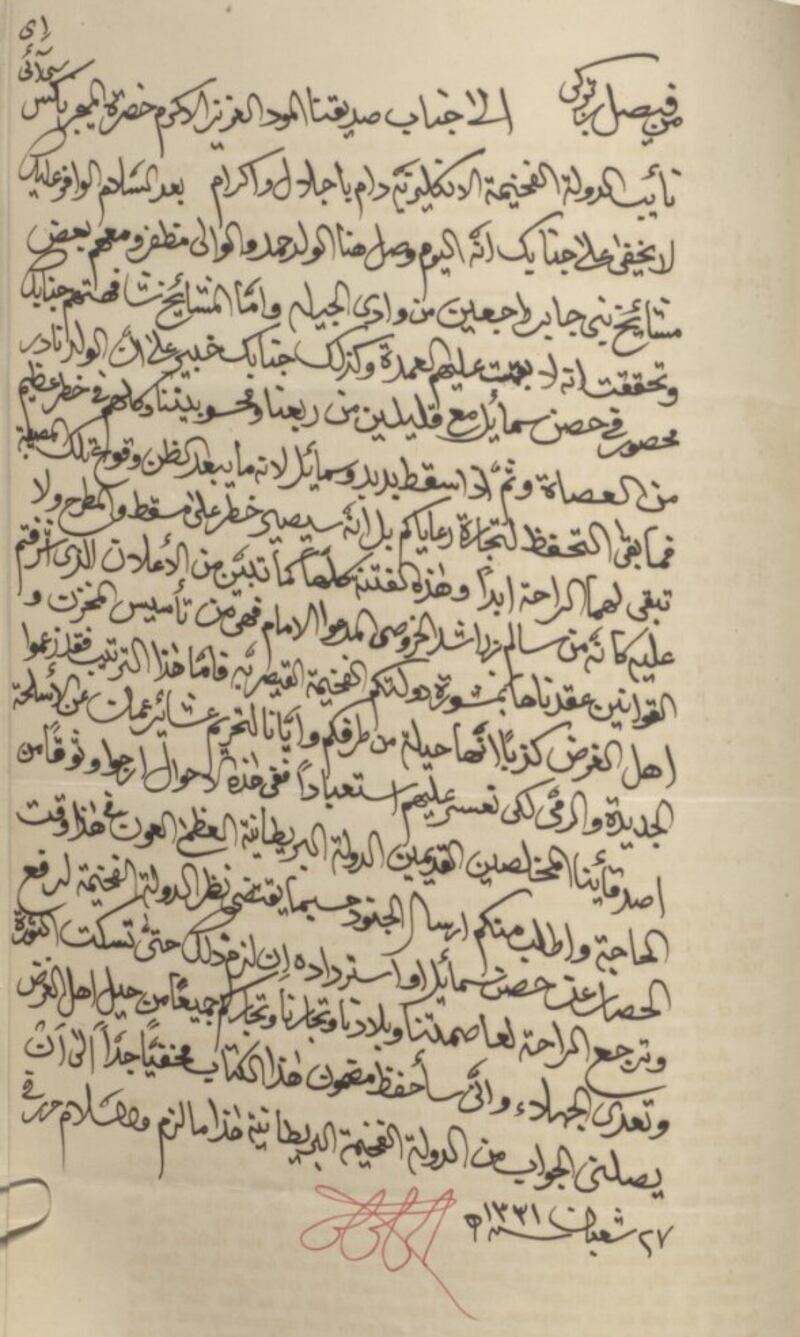 من فيصل بن تركي الى جناب صديقنا المود العزيز الاكرم حضرة الميجر ناكس
اي
سي آئي
نائب الدولة الفخيمة الانكليزيّة دام باجلال واكرام بعد السلام الوافر عليك
لا يخفى على جنابك انّه اليوم وصل هنا الولد حمد والوالى مظفر ومعهم بعض
مشائخ بني جابر راجعين من وادى الجيله وامّا المشائخ شافهتهم جنابك
وتحققت انه لا بقيت عليهم العمدة وكذلك جنابك خبير على انّ الولد نادر
محصور في حصن سمائل مع قليلين من ربعنا ونحو بيتنا وكلهم في خطر عظيم
من العصاة وثمّ اذا سقط بدبد وسمائل لانه ما يبعد الظن وقوع تلك المصيبة
فما بقى التحفظ لتجارة رعاياكم بل انّه سيصير خطر على مسقط والمطرح ولا
تبقى لهما الراحة ابداً وهذه الفتنة كلّها كما تبيّن من الأعلان الذى اشرفتم
عليه كانه من سالم بن راشد الخروصى المدعوا الامام فهى من تأسيس المخزن و
القوانين عقدناها بمشورة دولتكم الفخيمة القيصريّه فامّا هذا الترتيب فقد زعموا
اهل الغرض كذباً انّها حيلة من طرفكم وايّانا لتحريم عشائر عمان عن الأسلحة
الجديدة والرمى لكى تعسر عليهم استعباداً ففى هذه الاحوال ارجوا وثوقًا من
اصدقائنا المخلصين القديمين الدولة البريطانية العظمى العون في هذا وقت
الحاجة واطلب منكم ارسال الجنود حسبما يقتضى نظر الدولة الفخيمة لرفع
الحصار عن حصن سمائل او استرداده ان لزم ذلك حتى تسكت الثورة
وترجع الراحة لعاصمتنا وبلادنا وتجارنا وتجاركم جميعًا من حيل اهل الغرض
وتعدى الجهلاء وانّى سأحفظ مضمون هذا الكتاب مخفيًّا جدّاً الى أن
يصلنى الجواب من الدولة الفخيمة البريطانية هذا ما لزم والسلام حرر في
٢٧ شعبان سنة ١٣٣١ه